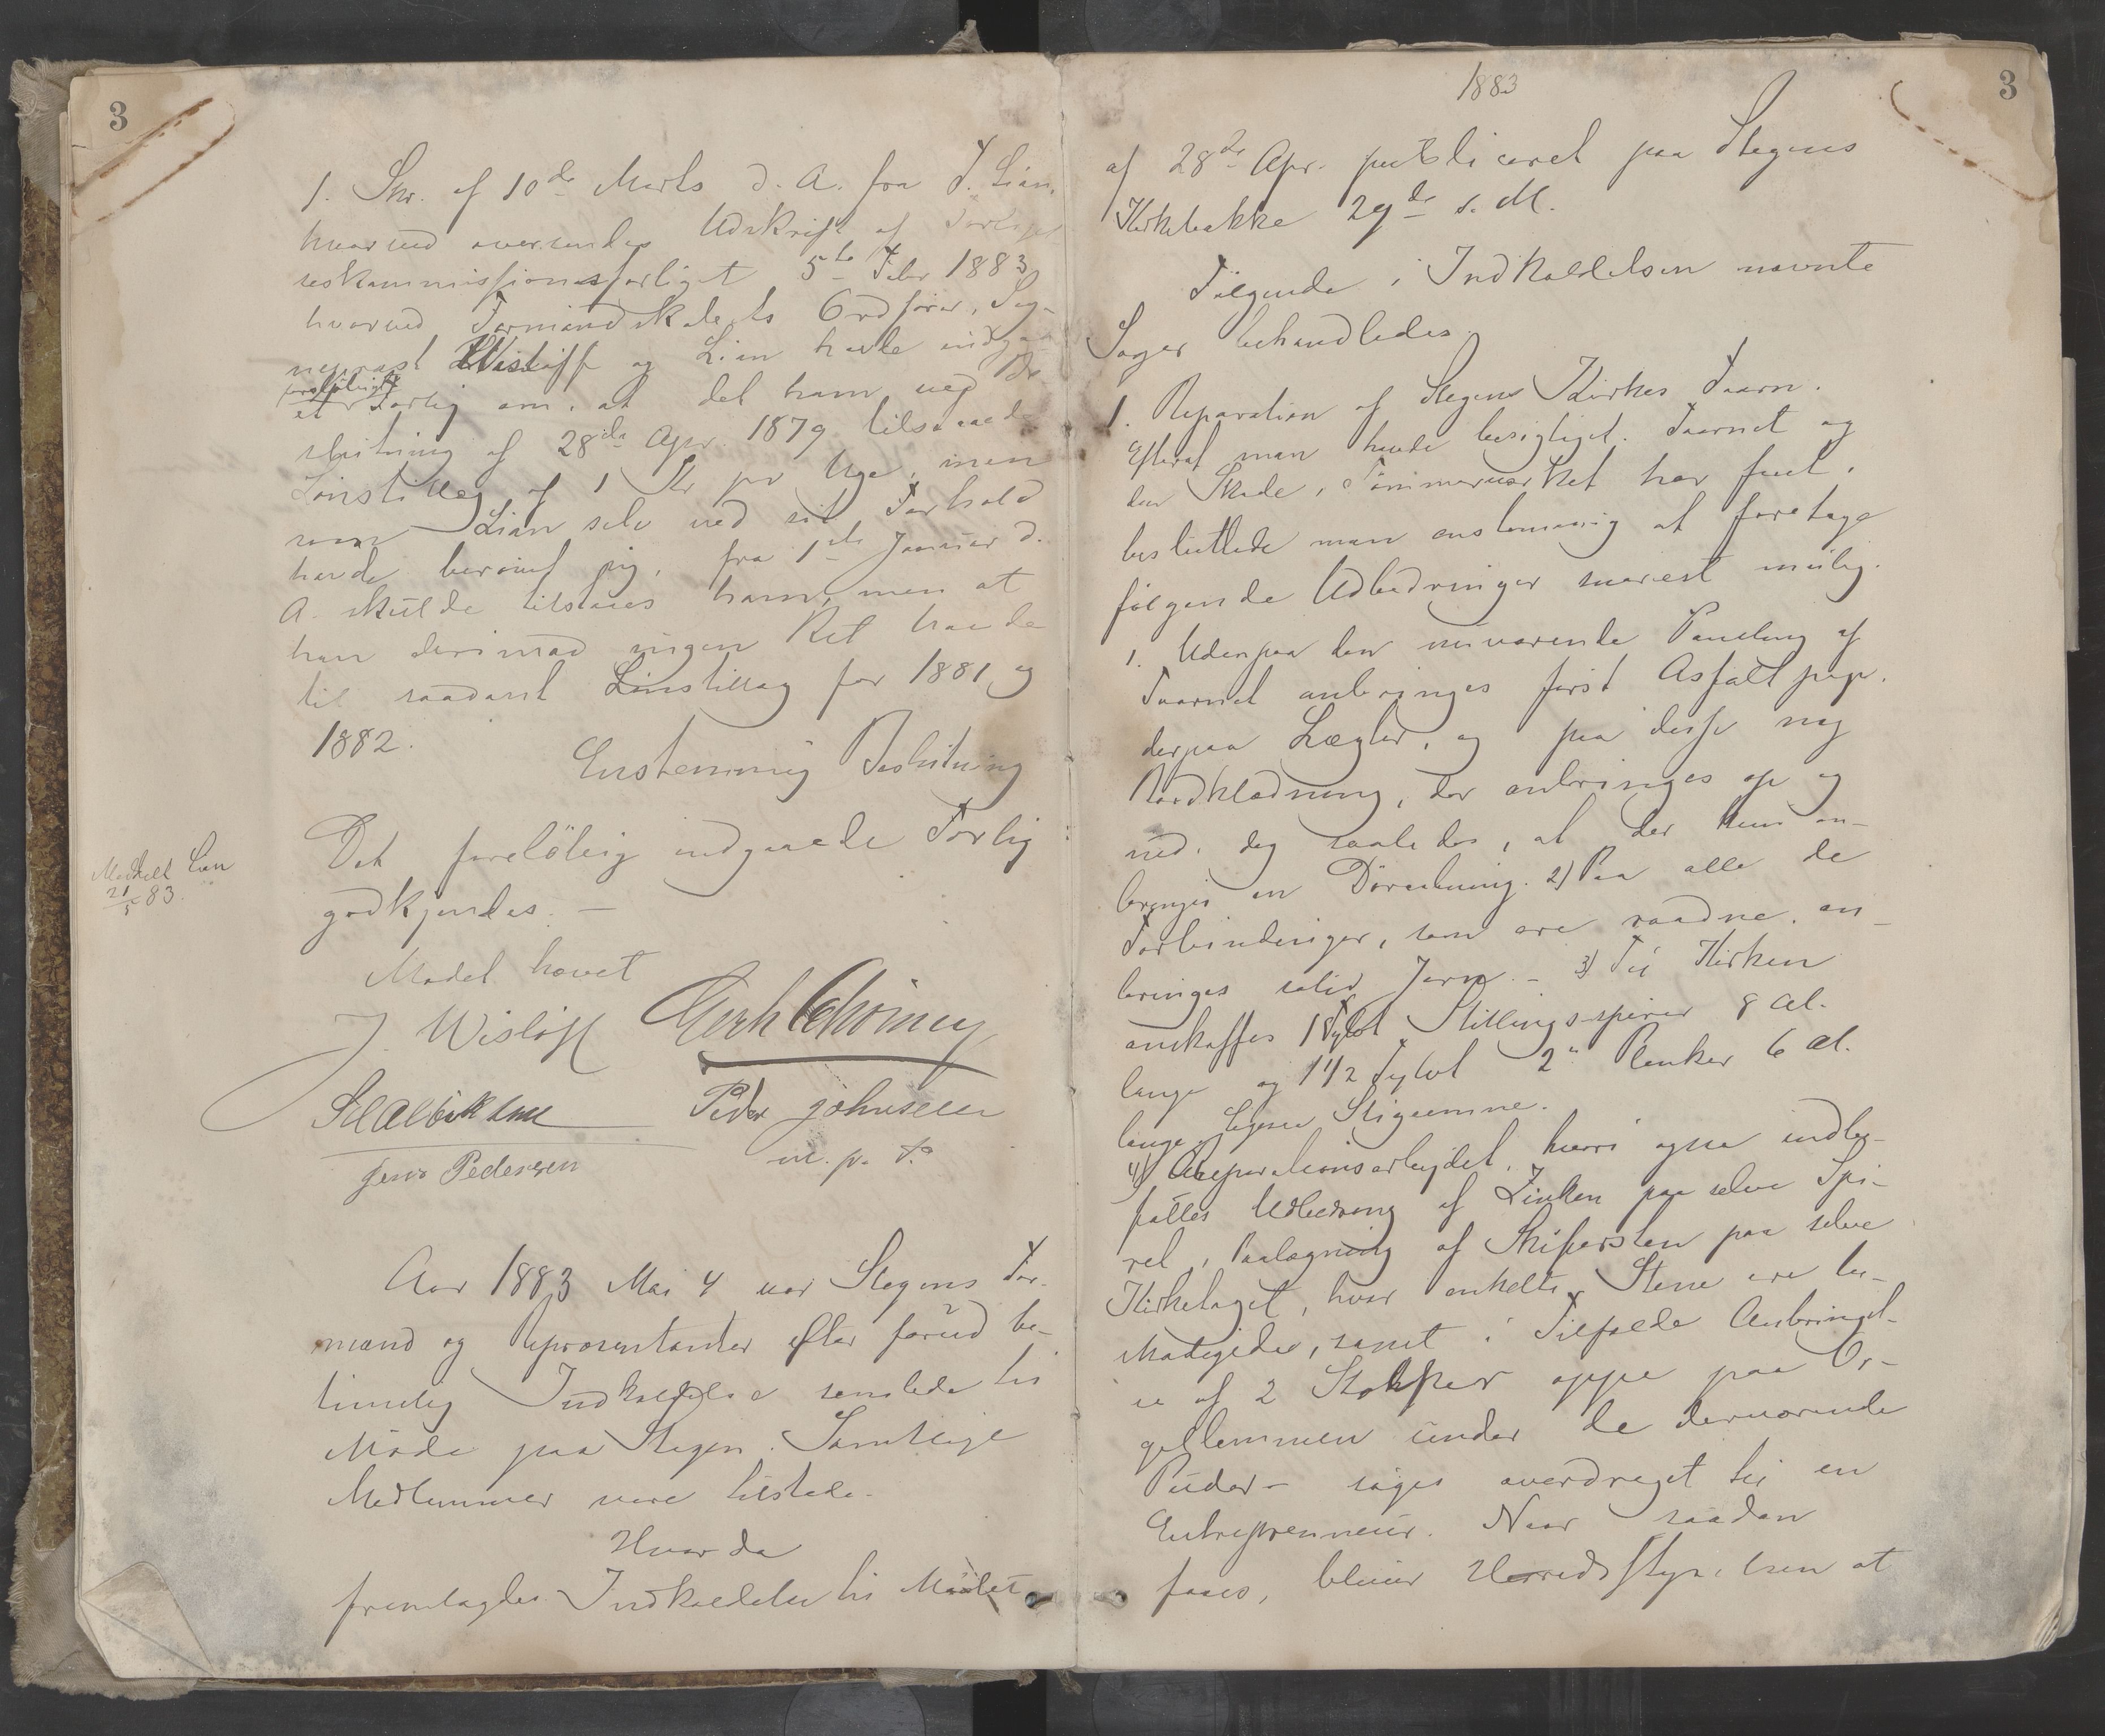 3
1. Skr. af 10de Marts d. A. fra J. Lian,
hvorved oversendes Udskrift af Forligel
seskommissionsforliget 5te Febr 1883
hvorved Formandskabets Ordfører, Sog-
neprest Wisløff og Lian havde indgaa
foreløbigt
et Forlig om, at det ham ved Be
slutning af 28de Apr. 1879 tilstaaede
Lønstillæg af 1 Kr pr Uge, men
som Lian selv ved sit Forhold
havde berøvet sig, fra 1ste Januar d.
A. skulde tilstaaes ham, men at
han derimod ingen Ret havde
til saadant Lønstillæg for 1881 og
1882.
Enstemmig Beslutning
Det foreløbig indgaaede Forlig
godkjendes. –
Meddelt Lian
21/5 83.
Mødet hævet
J. Wisløff Gerh Schöning
Peder Johnsen
m. p. P.
Jens Pedersen
Aar 1883 Mai 4 var Stegens For-
mænd og Repræsentanter efter forud be-
timelig Indkaldelse samlede til
Møde paa Stegen. Samtlige
Medlemmer vare tilstede.
Hvorda
fremlagdes Indkaldelse til Mødet
1883
3
af 28de Apr. publiceret paa Stegens
Kirkebakke 29de s. M.
Følgende i Indkaldelsen nævnte
Sager behandledes.
1. Reparation af Stegens Kirkes Taarn.
Efterat man havde besigtiget Taarnet og
den Skade, Tømmerværket har faaet,
besluttede man enstemmig at foretage
følgende Udbedringer snarest mulig.
1. Udenpaa den nuværende Paneling af
Taarnet anbringes først Asfaltpap.
derpaa Lægter, og paa disse ny
Bordklædning, der anbringes op og
ned, dog saaledes, at der kun an-
bringes en Døraabning. 2) Paa alle de
Forbindinger, som ere raadne, an-
bringes solid Jern. – 3) Til Kirken
anskaffes 1 Tylvt Stillingsspirer 8 Al.
lange og 1 1/2 Tylvt 2" Planker 6 Al.
lange, ligesaa Stigeemne.
4) Reparationsarbeidet, hvori ogsaa indbe-
fattes Udbedring af Zinken paa selve Spi-
ret, Paalægning af Skifersten paa selve
Kirketaget, hvor enkelte Stene ere be-
skadigede, samt i Tilfælde Anbringel-
se af 2 Stokker oppe paa Or-
gellemmen under de derværende
Puder – søges overdraget til en
Entreprenneur. Naar saadan
faaes, bliver Herredsstyrelsen at